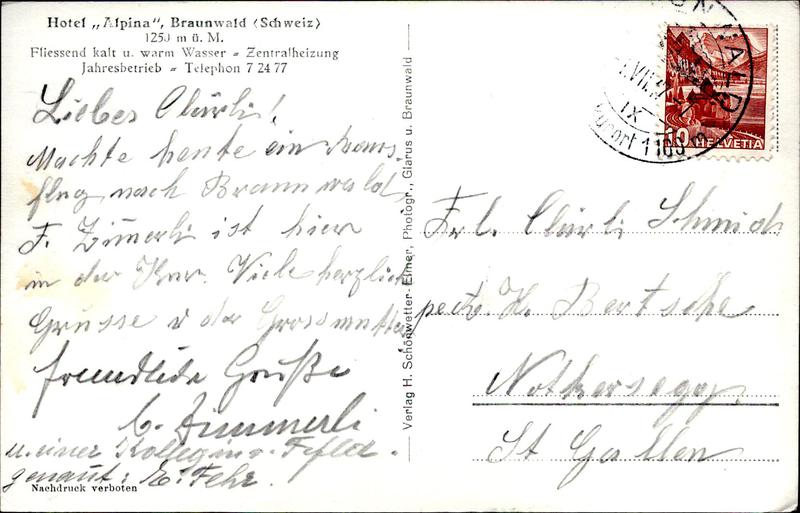 Hotel „Alpina", Braunwald (Schweiz)
1250 m ü. M.
Fliessend kalt u. warm Wasser - Zentralheizung
Jahresbetrieb - Telephon 7 24 77
Liebes Clärli!
Machte heute ein Aus-
flug nach Braunwald,
F. Zimmerli ist hier
in der Kur. Viele herzliche
Grüsse v der Grossmutter
freundliche Grüße
Zimmerli
u. einer Kollegin
genannt: E. Fehr.
Nachdruck verboten
Verlag H. Schönwetter-Elmer, Photogr., Glarus u. Braunwald
Kurort 1 100 m
10 HELVETIA
Frl. Clärli Schmid
H. Bertsche
Notkersegg
St Gallen